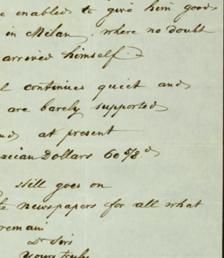 e enabled to give him good
in Milan, where no doubt
arrived himself.
l continues quiet and
are barely supported
and at present
Dollars 60 5/8 d
still goes on
newspapers for all what
remain
Dr Sirs
Yours truly